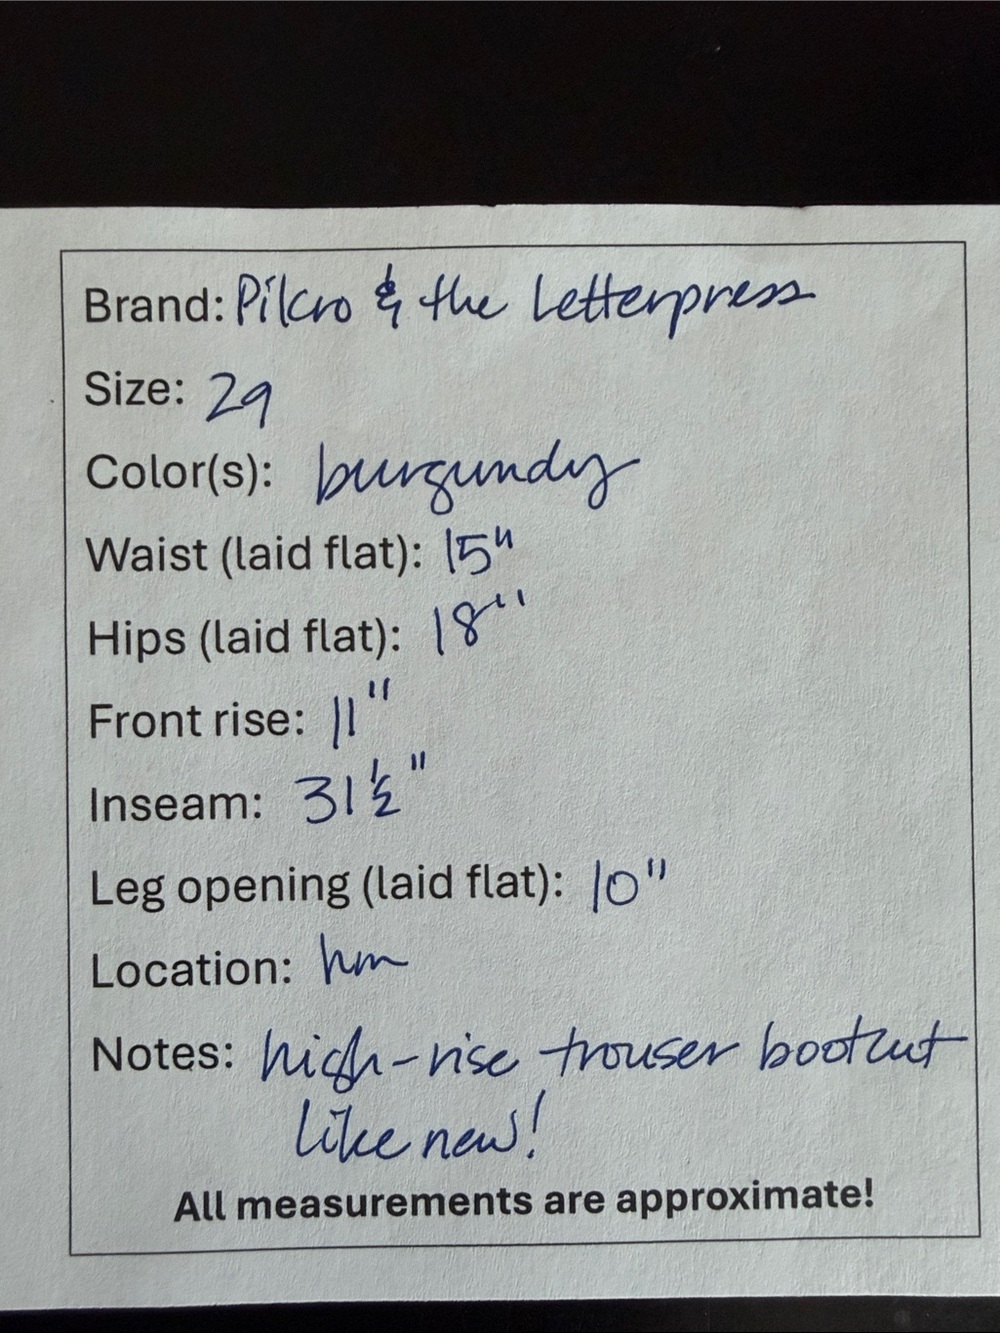 Brand: Pilcro & the Letterpress
Size: 29
Color(s): burgundy
Waist (laid flat): 15"
Hips (laid flat): 18"
Front rise: 11"
Inseam: 31 1/2"
Leg opening (laid flat): 10"
Location: hm
Notes: high-rise trouser bootcut
like new!
All measurements are approximate!